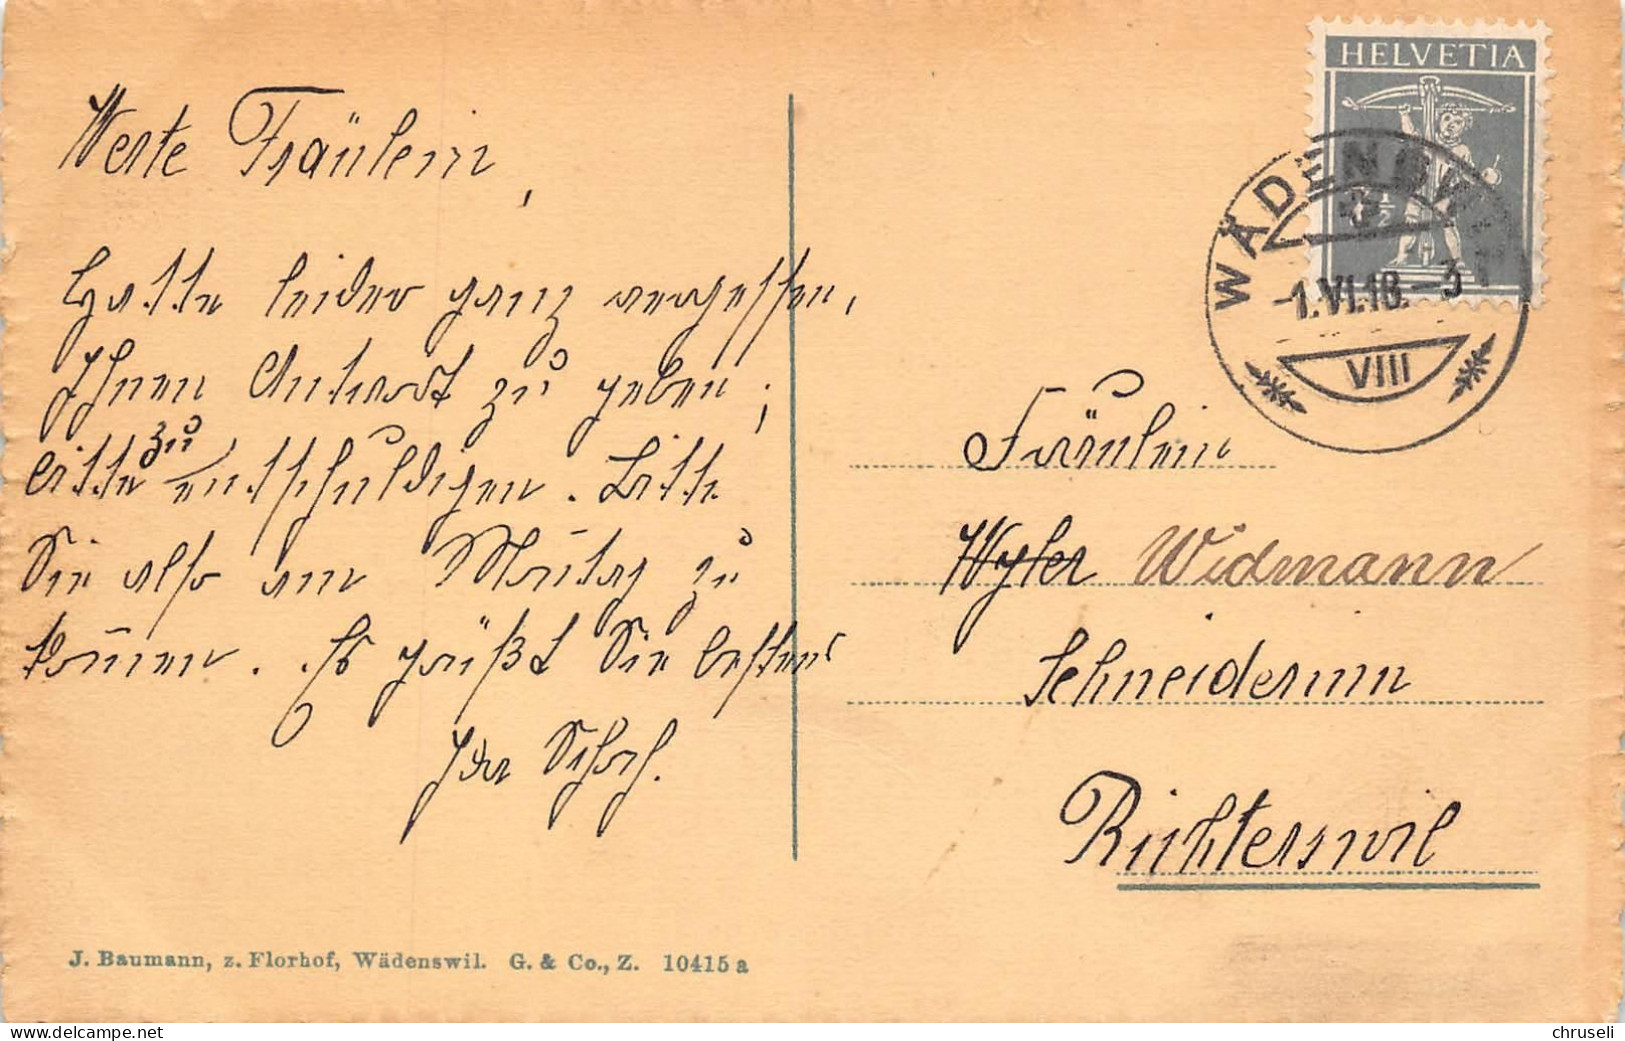 Werte Fräulein,
Hatte leider ganz vergessen,
Ihnen Antwort zu geben;
bitte zu entschuldigen. Bitte
Sie also am Montag zu
kom̄en. Es grüßt Sie bestens
Ida Schoch.
J. Baumann, z. Florhof, Wädenswil. G. & Co., Z. 10415 a
HELVETIA
WÄDENSWIL
-1.VI.18.-3
VIII
Fräulein
Wyler Widmann
Schneiderinn
Richterswil
delcampe.net
chruseli